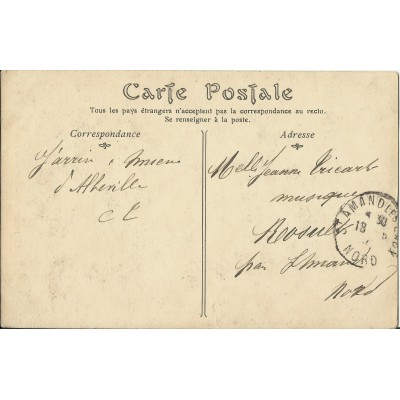 Carte Postale
Tous les pays étrangers n'acceptent pas la correspondance au recto.
Se renseigner à la poste.
Correspondance
Adresse
d'Abbeville
Melle Jeanne Tricart
musique
Rosult
par St Amand
Nord
ST AMAND LES EAUX
18
NORD